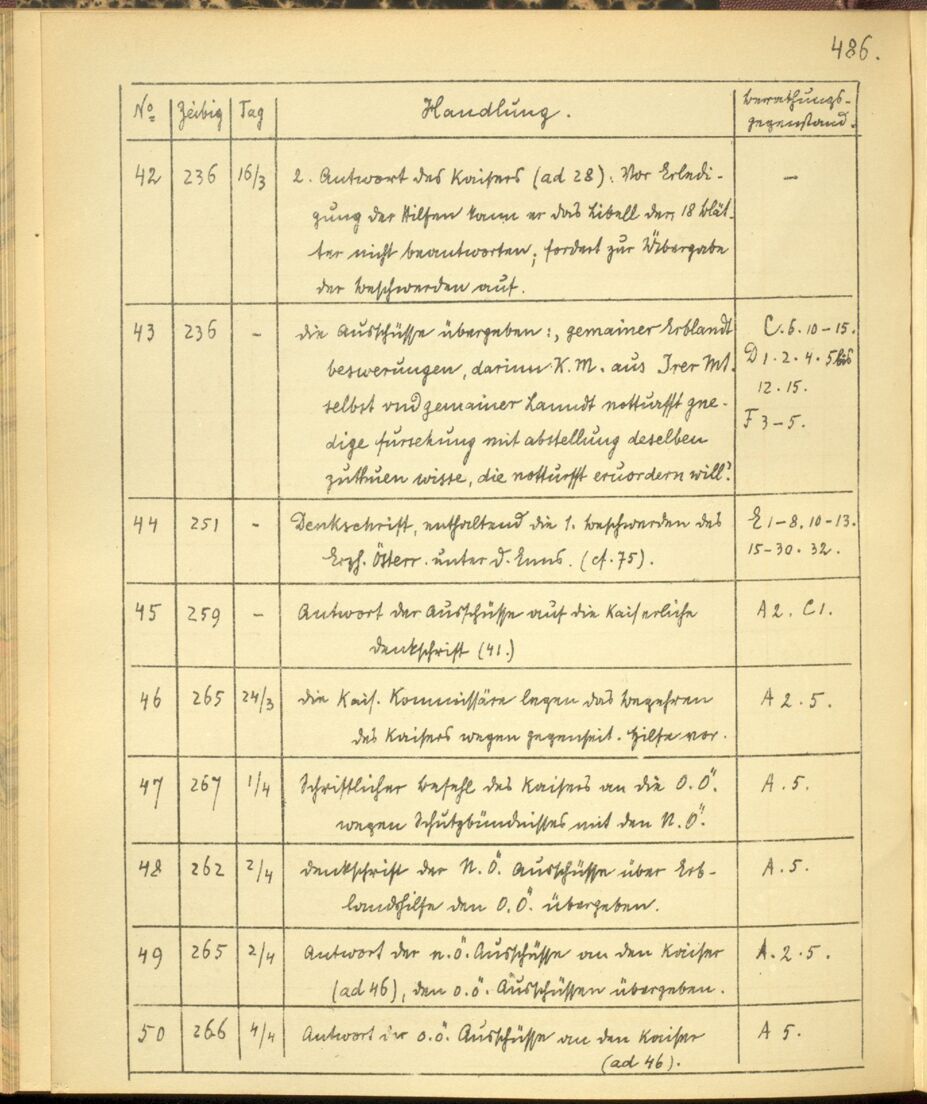 486.
No Zeibig Tag Handlung. Berathungs-
gegenstand.
42 236 16/3 2. Antwort des Kaisers (ad 28): Vor Erledi- –
gung der Hilfen kann er das Libell der 18 Blät-
ter nicht beantworten; fordert zur Übergabe
der Beschwerden auf.
43 236 – die Ausschüsse übergeben: „gemainer Erblandt C. 6. 10–15.
beswerungen, darinn K. M. aus Irer Mt. D 1. 2. 4. 5 bis
selbst vnd gemainer Lanndt notturfft gne- 12. 15.
dige fursehung mit abstellung deselben F 3–5.
zuthuen wisse, die notturfft eruordern will."
44 251 – Denkschrift, enthaltend die 1. Beschwerden des E 1–8. 10–13.
Erzh. Österr. unter d. Enns. (cf. 75). 15–30. 32.
45 259 – Antwort der Ausschüsse auf die Kaiserliche A 2. C 1.
Denkschrift (41.)
46 265 24/3 die Kais. Kommissäre legen das Begehren A 2. 5.
des Kaisers wegen gegenseit. Hilfe vor.
47 267 1/4 Schriftlicher Befehl des Kaisers an die O.Ö. A. 5.
wegen Schutzbündnisses mit den N.Ö.
48 262 2/4 Denkschrift der N.Ö. Ausschüsse über Erb- A. 5.
landshilfe den O.Ö. übergeben.
49 265 2/4 Antwort der n.ö. Ausschüsse an den Kaiser A. 2. 5.
(ad 46), den o.ö. Ausschüssen übergeben.
50 266 4/4 Antwort der o.ö. Ausschüsse an den Kaiser A 5.
(ad 46).